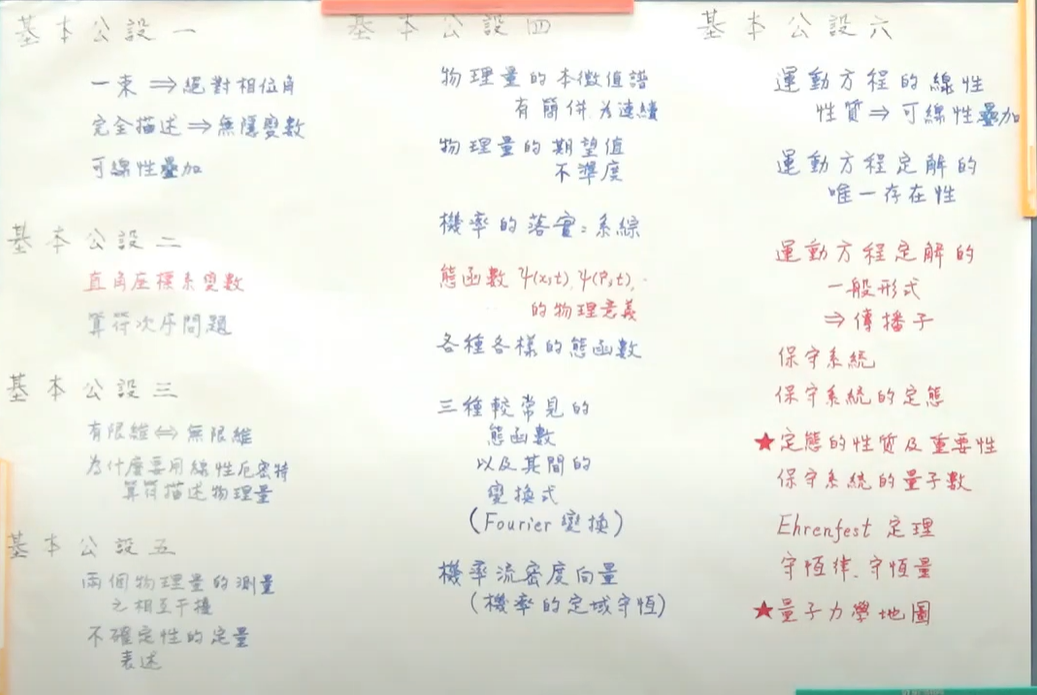 基本公設一
一束 ⇒ 絕對相位角
完全描述 ⇒ 無隱變數
可線性疊加
基本公設二
直角座標系變數
算符次序問題
基本公設三
有限維 ⇔ 無限維
為什麼要用線性厄密特
算符描述物理量
基本公設五
兩個物理量的測量
之相互干擾
不確定性的定量
表述
基本公設四
物理量的本徵值譜
有簡併為連續
物理量的期望值
不準度
機率的落實:系綜
態函數 Ψ(x,t), Ψ(P,t),
的物理意義
各種各樣的態函數
三種較常見的
態函數
以及其間的
變換式
(Fourier 變換)
機率流密度向量
(機率的定域守恆)
基本公設六
運動方程的線性
性質 ⇒ 可線性疊加
運動方程定解的
唯一存在性
運動方程定解的
一般形式
⇒ 傳播子
保守系統
保守系統的定態
★定態的性質及重要性
保守系統的量子數
Ehrenfest 定理
守恆律、守恆量
★量子力學地圖